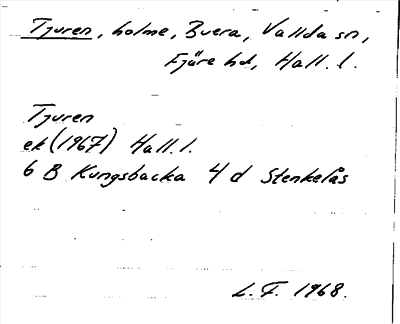 Tjuren, holme, Buera, Vallda sn,
Fjäre hd, Hall. l.
Tjuren
ek (1967) Hall. l.
6 B Kungsbacka 4 d Stenkelås
L. F. 1968.